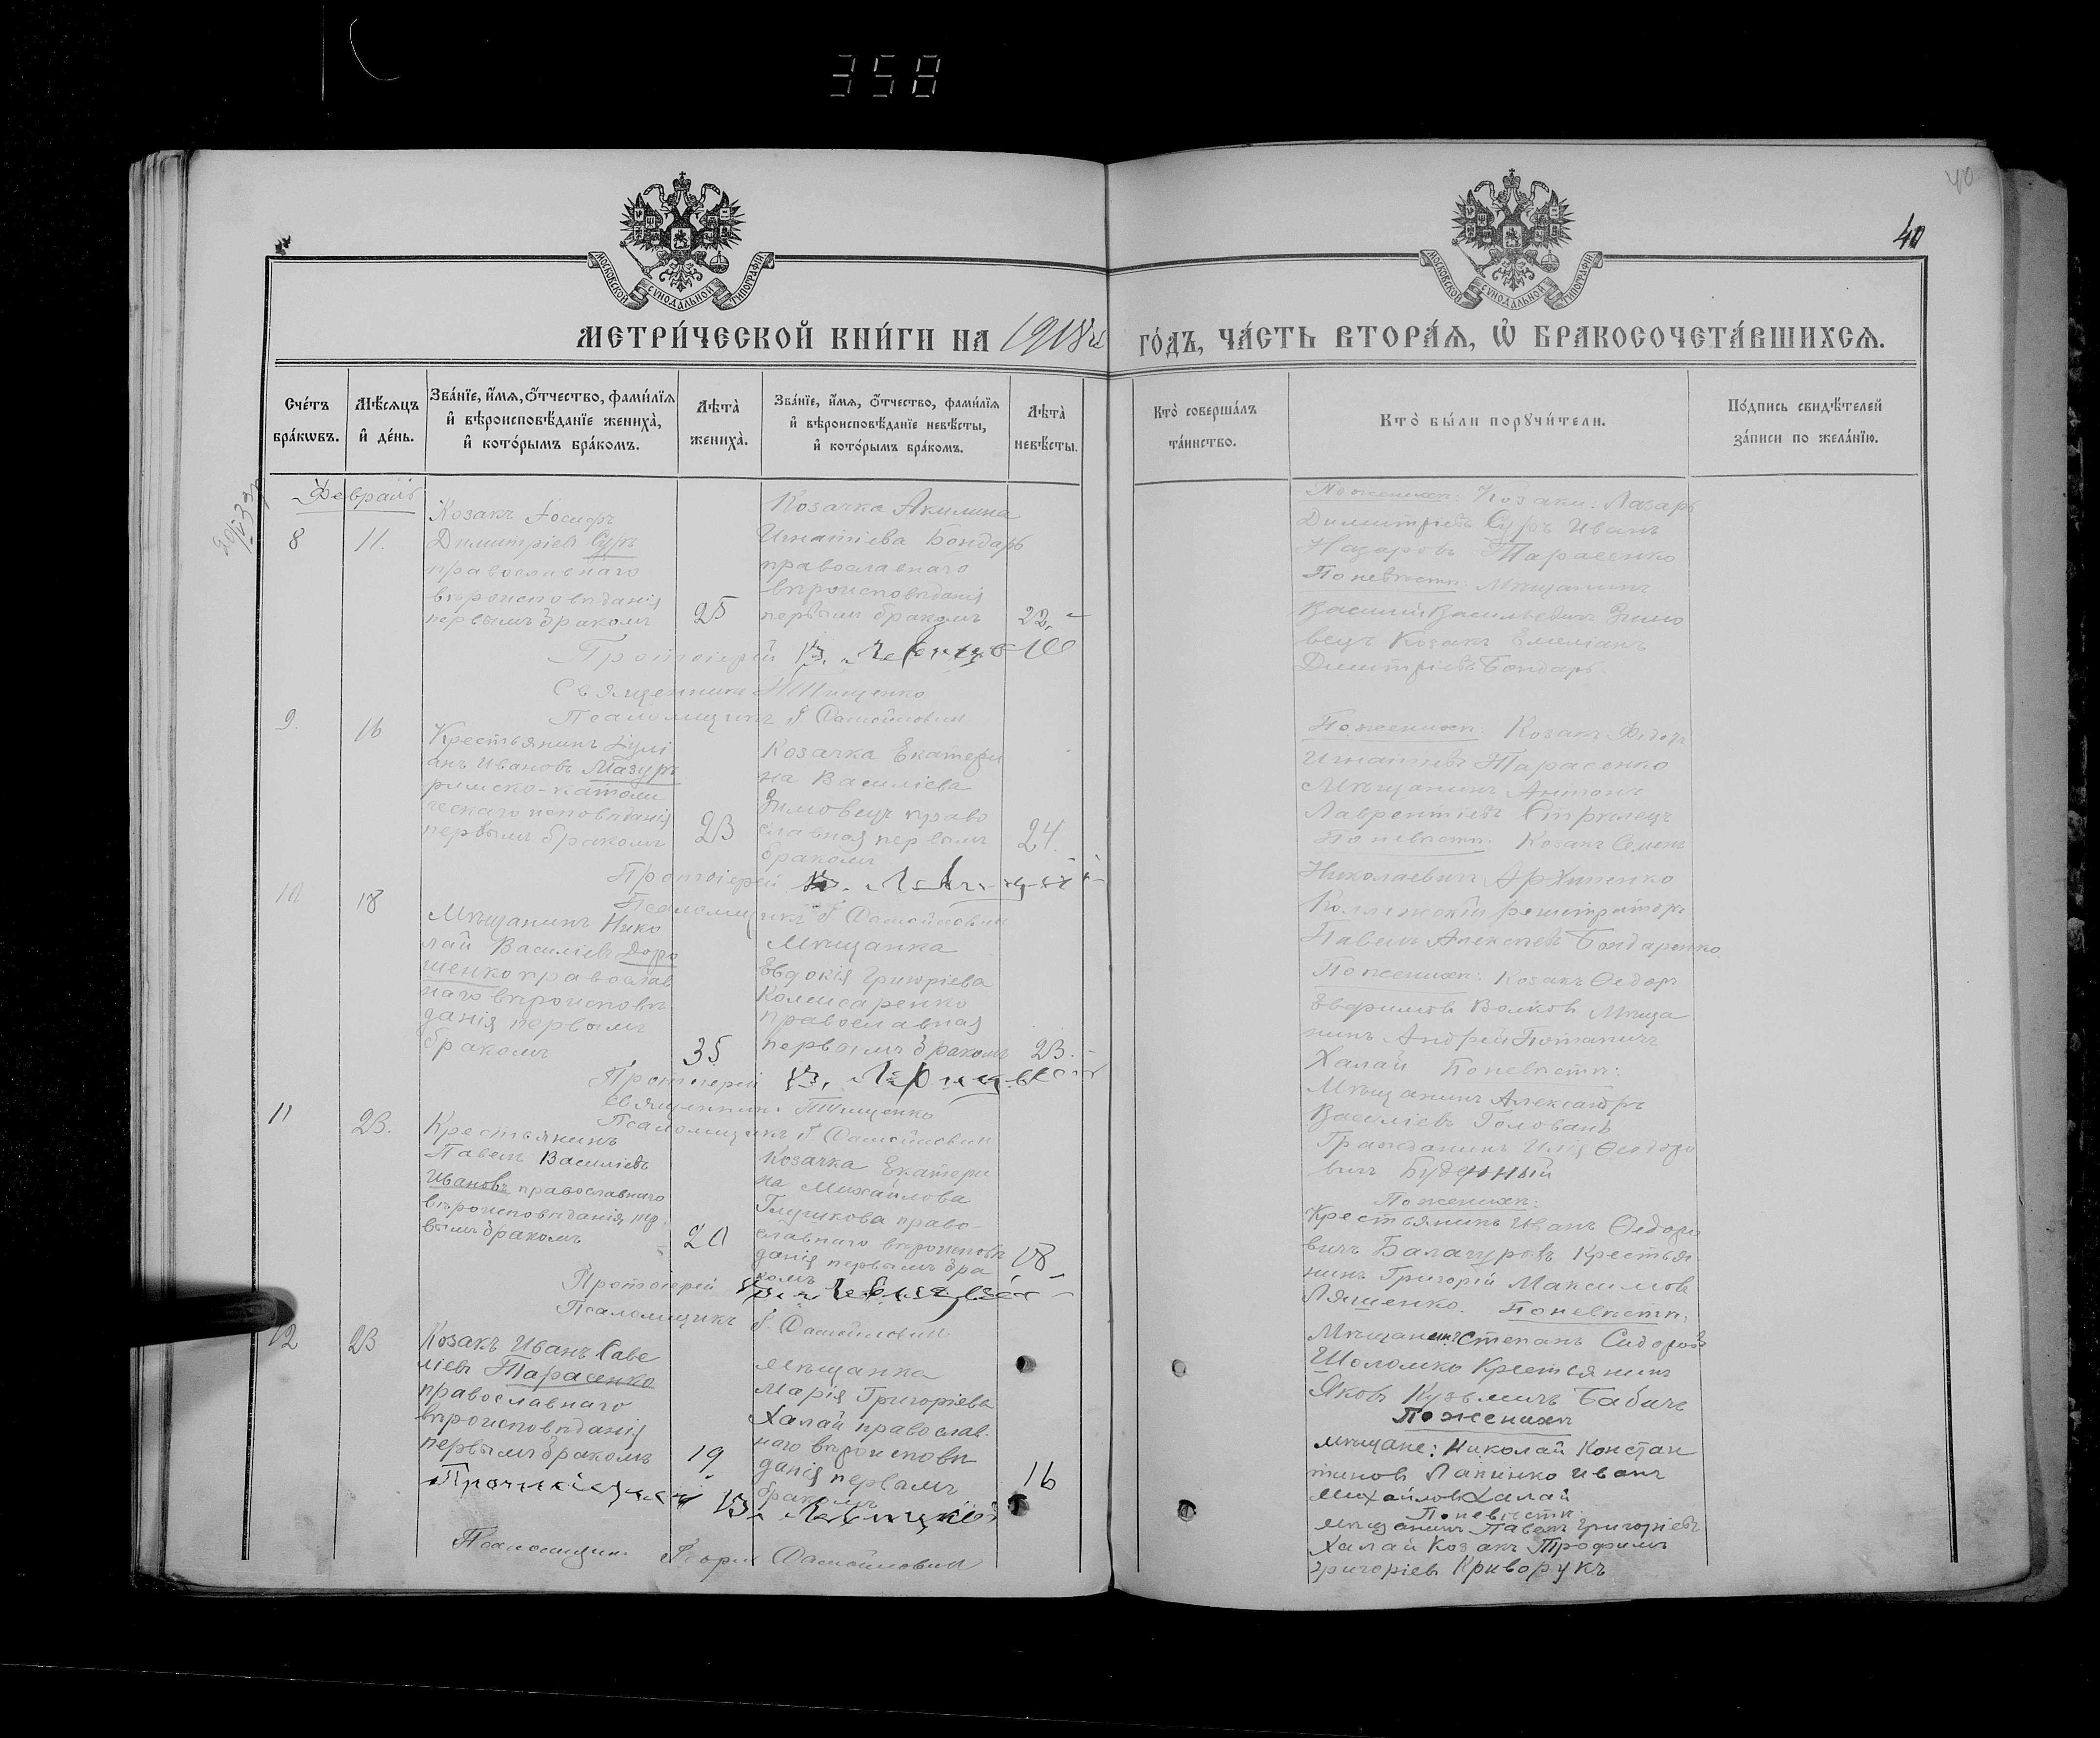 358
40
40
МОСКОВСКОЙ СѴНОДАЛЬНОЙ ТИПОГРАФІИ
МОСКОВСКОЙ СѴНОДАЛЬНОЙ ТИПОГРАФІИ
МЕТРИ́ЧЕСКОЙ КНИ́ГИ НА 1918
ГО́ДЪ, ЧА́СТЬ ВТОРА́Я, Ѡ҆ БРАКОСОЧЕТА́ВШИХСЯ.
Сче́тъ бра́кωвъ.
Мѣ́сяцъ и҆ де́нь.
Зва́нїе, и҆́мя, ѻ҆́тчество, фами́лїя и҆ вѣроисповѣ́данїе жениха̀, и҆ кото́рымъ бра́комъ.
Лѣта̀ жениха̀.
Зва́нїе, и҆́мя, ѻ҆́тчество, фами́лїя и҆ вѣроисповѣ́данїе невѣ́сты, и҆ кото́рымъ бра́комъ.
Лѣта̀ невѣ́сты.
Кто̀ соверша́лъ та́инство.
Кто̀ бы́ли порꙋчи́тели.
По́дпись свидѣ́телей за́писи по жела́нїю.
Февраль
8
11.
Козакъ Іосифъ
Димитріевъ Суръ
православнаго
вѣроисповѣданія
первымъ бракомъ
25
Козачка Акилина
Игнатіева Бондарь
православнаго
вѣроисповѣданія
первымъ бракомъ
22
Протоіерей В. Левицкій
Священникъ Тищенко
Псаломщикъ Г Самойлович
По женихѣ: Козаки: Лазарь
Димитріевъ Суръ Иванъ
Назаровъ Тарасенко
По невѣстѣ: Мѣщанинъ
Василій Васильевичъ Зимо
вецъ Козакъ Емиліанъ
Димитріевъ Бондарь.
9.
16
Крестьянинъ Іулі
анъ Ивановъ Мазуръ
римско-католи
ческаго исповѣданія
первымъ бракомъ
23
Козачка Екатери
на Василіева
Зимовецъ право
славная первымъ
бракомъ
24.
Протоіерей В. Левицкій
Псаломщикъ Г Самойлович
По женихѣ: Козакъ Федоръ
Игнатіевъ Тарасенко
Мѣщанинъ Антонъ
Лаврентіевъ Стрѣлецъ
По невѣстѣ. Козакъ Семенъ
Николаевичъ Архипенко
Павелъ Алексѣевъ Бондаренко
10
18
Мѣщанинъ Нико
лай Василіевъ Доро
шенко православ
наго вѣроисповѣ
данія первымъ
бракомъ
35
Мѣщанка
Евдокія Григоріева
Комисаренко
православная
первымъ бракомъ
23.
Протоіерей В. Левицкій
Священникъ Тищенко
Псаломщикъ Г Самойлович
По женихѣ: Козакъ Ѳедоръ
Евфимовъ Волковъ Мѣща
нинъ Андрей Потапичъ
Халай По невѣстѣ:
Мѣщанинъ Александръ
Василіевъ Голованъ
Гражданинъ Илія Ѳеодоро
вичъ Буденный
11
23.
Крестьянинъ
Павелъ Василіевъ
Ивановъ православнаго
вѣроисповѣданія пер
вымъ бракомъ
20
Козачка Екатери
на Михайлова
православнаго вѣроисповѣ
данія первымъ бра
комъ
18
Протоіерей В. Левицкій
Псаломщикъ Г. Самойлович
По женихѣ:
Крестьянинъ Иванъ Ѳедоро
вичъ Балагуровъ Крестья
нинъ Григорій Максимовъ
Ляшенко. По невѣстѣ:
Мѣщанинъ Степанъ Сидоровъ
Шоломко Крестьянинъ
Яковъ Кузьмичъ Бабичъ
12
23
Козакъ Иванъ Саве
ліевъ Тарасенко
православнаго
вѣроисповѣданія
первымъ бракомъ
19
Мѣщанка
Марія Григоріева
Халай православ
наго вѣроисповѣ
данія первымъ
бракомъ
16
Протоіерей В. Левицкій
Псаломщикъ Георгій Самойлович
По женихѣ
мѣщане: Николай Констан
тиновъ Лапенко Иванъ
Михайловъ Халай
По невѣстѣ
Мѣщанинъ Павелъ Григоріевъ
Халай Козакъ Трофимъ
Григоріевъ Криворукъ